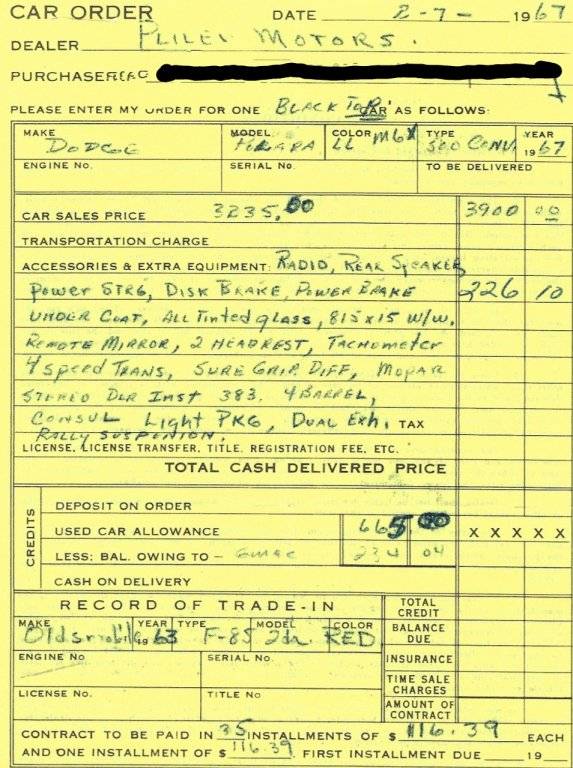 CAR ORDER DATE 2-7- 1967
DEALER MOTORS.
PURCHASER
PLEASE ENTER MY ORDER FOR ONE BLACK TOP CAR AS FOLLOWS:
MAKE MODEL COLOR TYPE YEAR
DODGE LL M6X 500 CONV. 1967
ENGINE NO. SERIAL NO. TO BE DELIVERED
CAR SALES PRICE 3235.00 3900 00
TRANSPORTATION CHARGE
ACCESSORIES & EXTRA EQUIPMENT: RADIO, REAR SPEAKER
POWER STRG, DISK BRAKE, POWER BRAKE 226 10
UNDER COAT, ALL TINTED GLASS, 815x15 W/W.
REMOTE MIRROR, 2 HEADREST, TACHOMETER
4 SPEED TRANS, SURE GRIP DIFF, MOPAR
STEREO DLR INST 383. 4 BARREL,
CONSUL LIGHT PKG, DUAL EXH, TAX
RALLY SUSPENION.
LICENSE, LICENSE TRANSFER, TITLE, REGISTRATION FEE, ETC.
TOTAL CASH DELIVERED PRICE
CREDITS
DEPOSIT ON ORDER
USED CAR ALLOWANCE 665.00 X X X X X
LESS: BAL. OWING TO - GMAC 234 04
CASH ON DELIVERY
RECORD OF TRADE-IN TOTAL CREDIT
MAKE YEAR TYPE MODEL COLOR BALANCE DUE
Oldsmobile 1963 F-85 2dr. RED
ENGINE NO. SERIAL NO. INSURANCE
TIME SALE CHARGES
LICENSE NO. TITLE NO AMOUNT OF CONTRACT
CONTRACT TO BE PAID IN 35 INSTALLMENTS OF $ 116.39 EACH
AND ONE INSTALLMENT OF $ 116.39. FIRST INSTALLMENT DUE 19